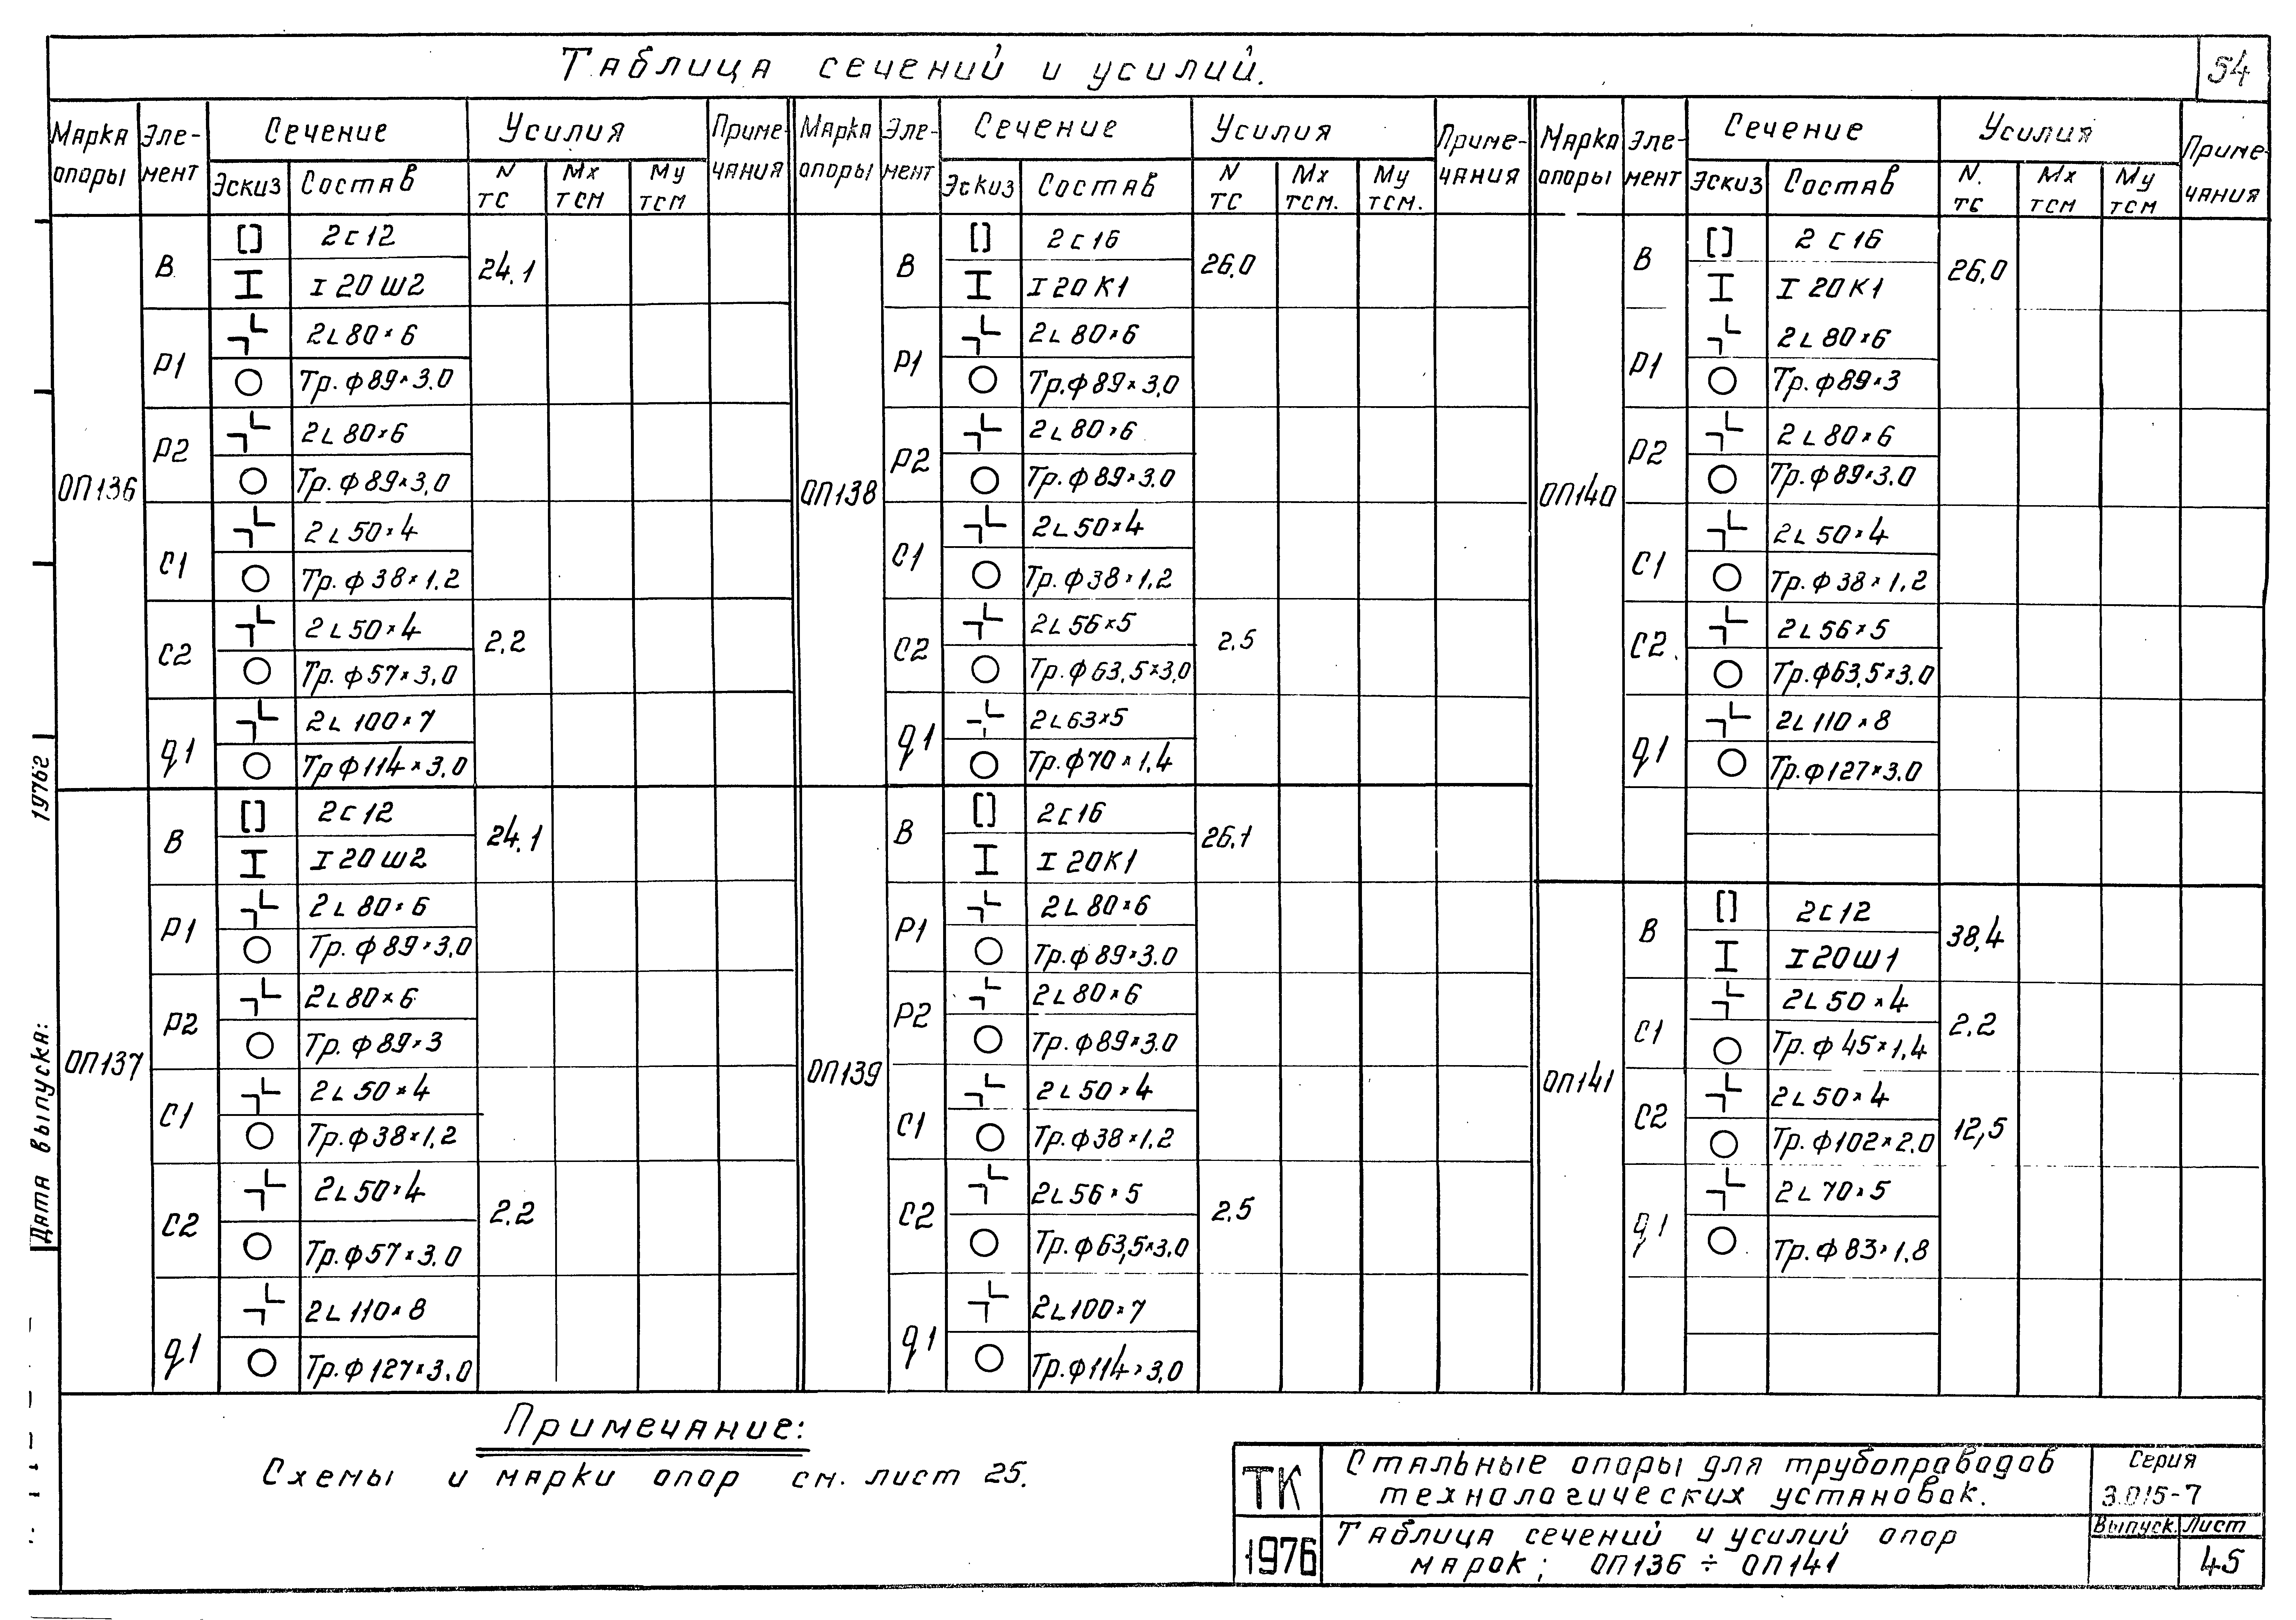 54
Таблица сечений и усилий.
Марка опоры Эле-мент Сечение Усилия Приме-чания
Эскиз Состав N тс Mx тсм My тсм
ОП136
В 2С12 24.1
I 20Ш2
Р1 2L80×6
Тр. ф89×3.0
Р2 2L80×6
Тр. ф89×3,0
С1 2L50×4
Тр. ф38×1,2
С2 2L50×4 2,2
Тр. ф57×3,0
q1 2L100×7
Тр ф114×3,0
ОП137
В 2С12 24.1
I 20Ш2
Р1 2L80×6
Тр. ф89×3,0
Р2 2L80×6
Тр. ф89×3
С1 2L50×4
Тр. ф38×1,2
С2 2L50×4 2,2
Тр. ф57×3,0
q1 2L110×8
Тр. ф127×3,0
Марка опоры Эле-мент Сечение Усилия Приме-чания
Эскиз Состав N тс Mx тсм. My тсм.
ОП138
В 2С16 26,0
I 20К1
Р1 2L80×6
Тр. ф89×3,0
Р2 2L80×6
Тр. ф89×3.0
С1 2L50×4
Тр. ф38×1,2
С2 2L56×5 2,5
Тр. ф63,5×3,0
q1 2L63×5
Тр. ф70×1,4
ОП139
В 2С16 26,1
I 20К1
Р1 2L80×6
Тр. ф89×3.0
Р2 2L80×6
Тр. ф89×3.0
С1 2L50×4
Тр. ф38×1,2
С2 2L56×5 2,5
Тр. ф63,5×3,0
q1 2L100×7
Тр. ф114×3,0
Марка опоры Эле-мент Сечение Усилия Приме-чания
Эскиз Состав N. тс Mx тсм My тсм
ОП140
В 2С16 26,0
I 20К1
Р1 2L80×6
Тр. ф89×3
Р2 2L80×6
Тр. ф89×3.0
С1 2L50×4
Тр. ф38×1,2
С2 2L56×5
Тр. ф63,5×3.0
q1 2L110×8
Тр. ф127×3.0
ОП141
В 2С12 38,4
I 20Ш1
С1 2L50×4 2,2
Тр. ф45×1,4
С2 2L50×4 12,5
Тр. ф102×2.0
q1 2L70×5
Тр. ф83×1,8
Примечание:
Схемы и марки опор см. лист 25.
ТК
1976
Стальные опоры для трубопроводов
технологических установок.
Таблица сечений и усилий опор
марок; ОП136 ÷ ОП141
Серия
3.015-7
Выпуск. Лист
45
Дата выпуска: 1976г